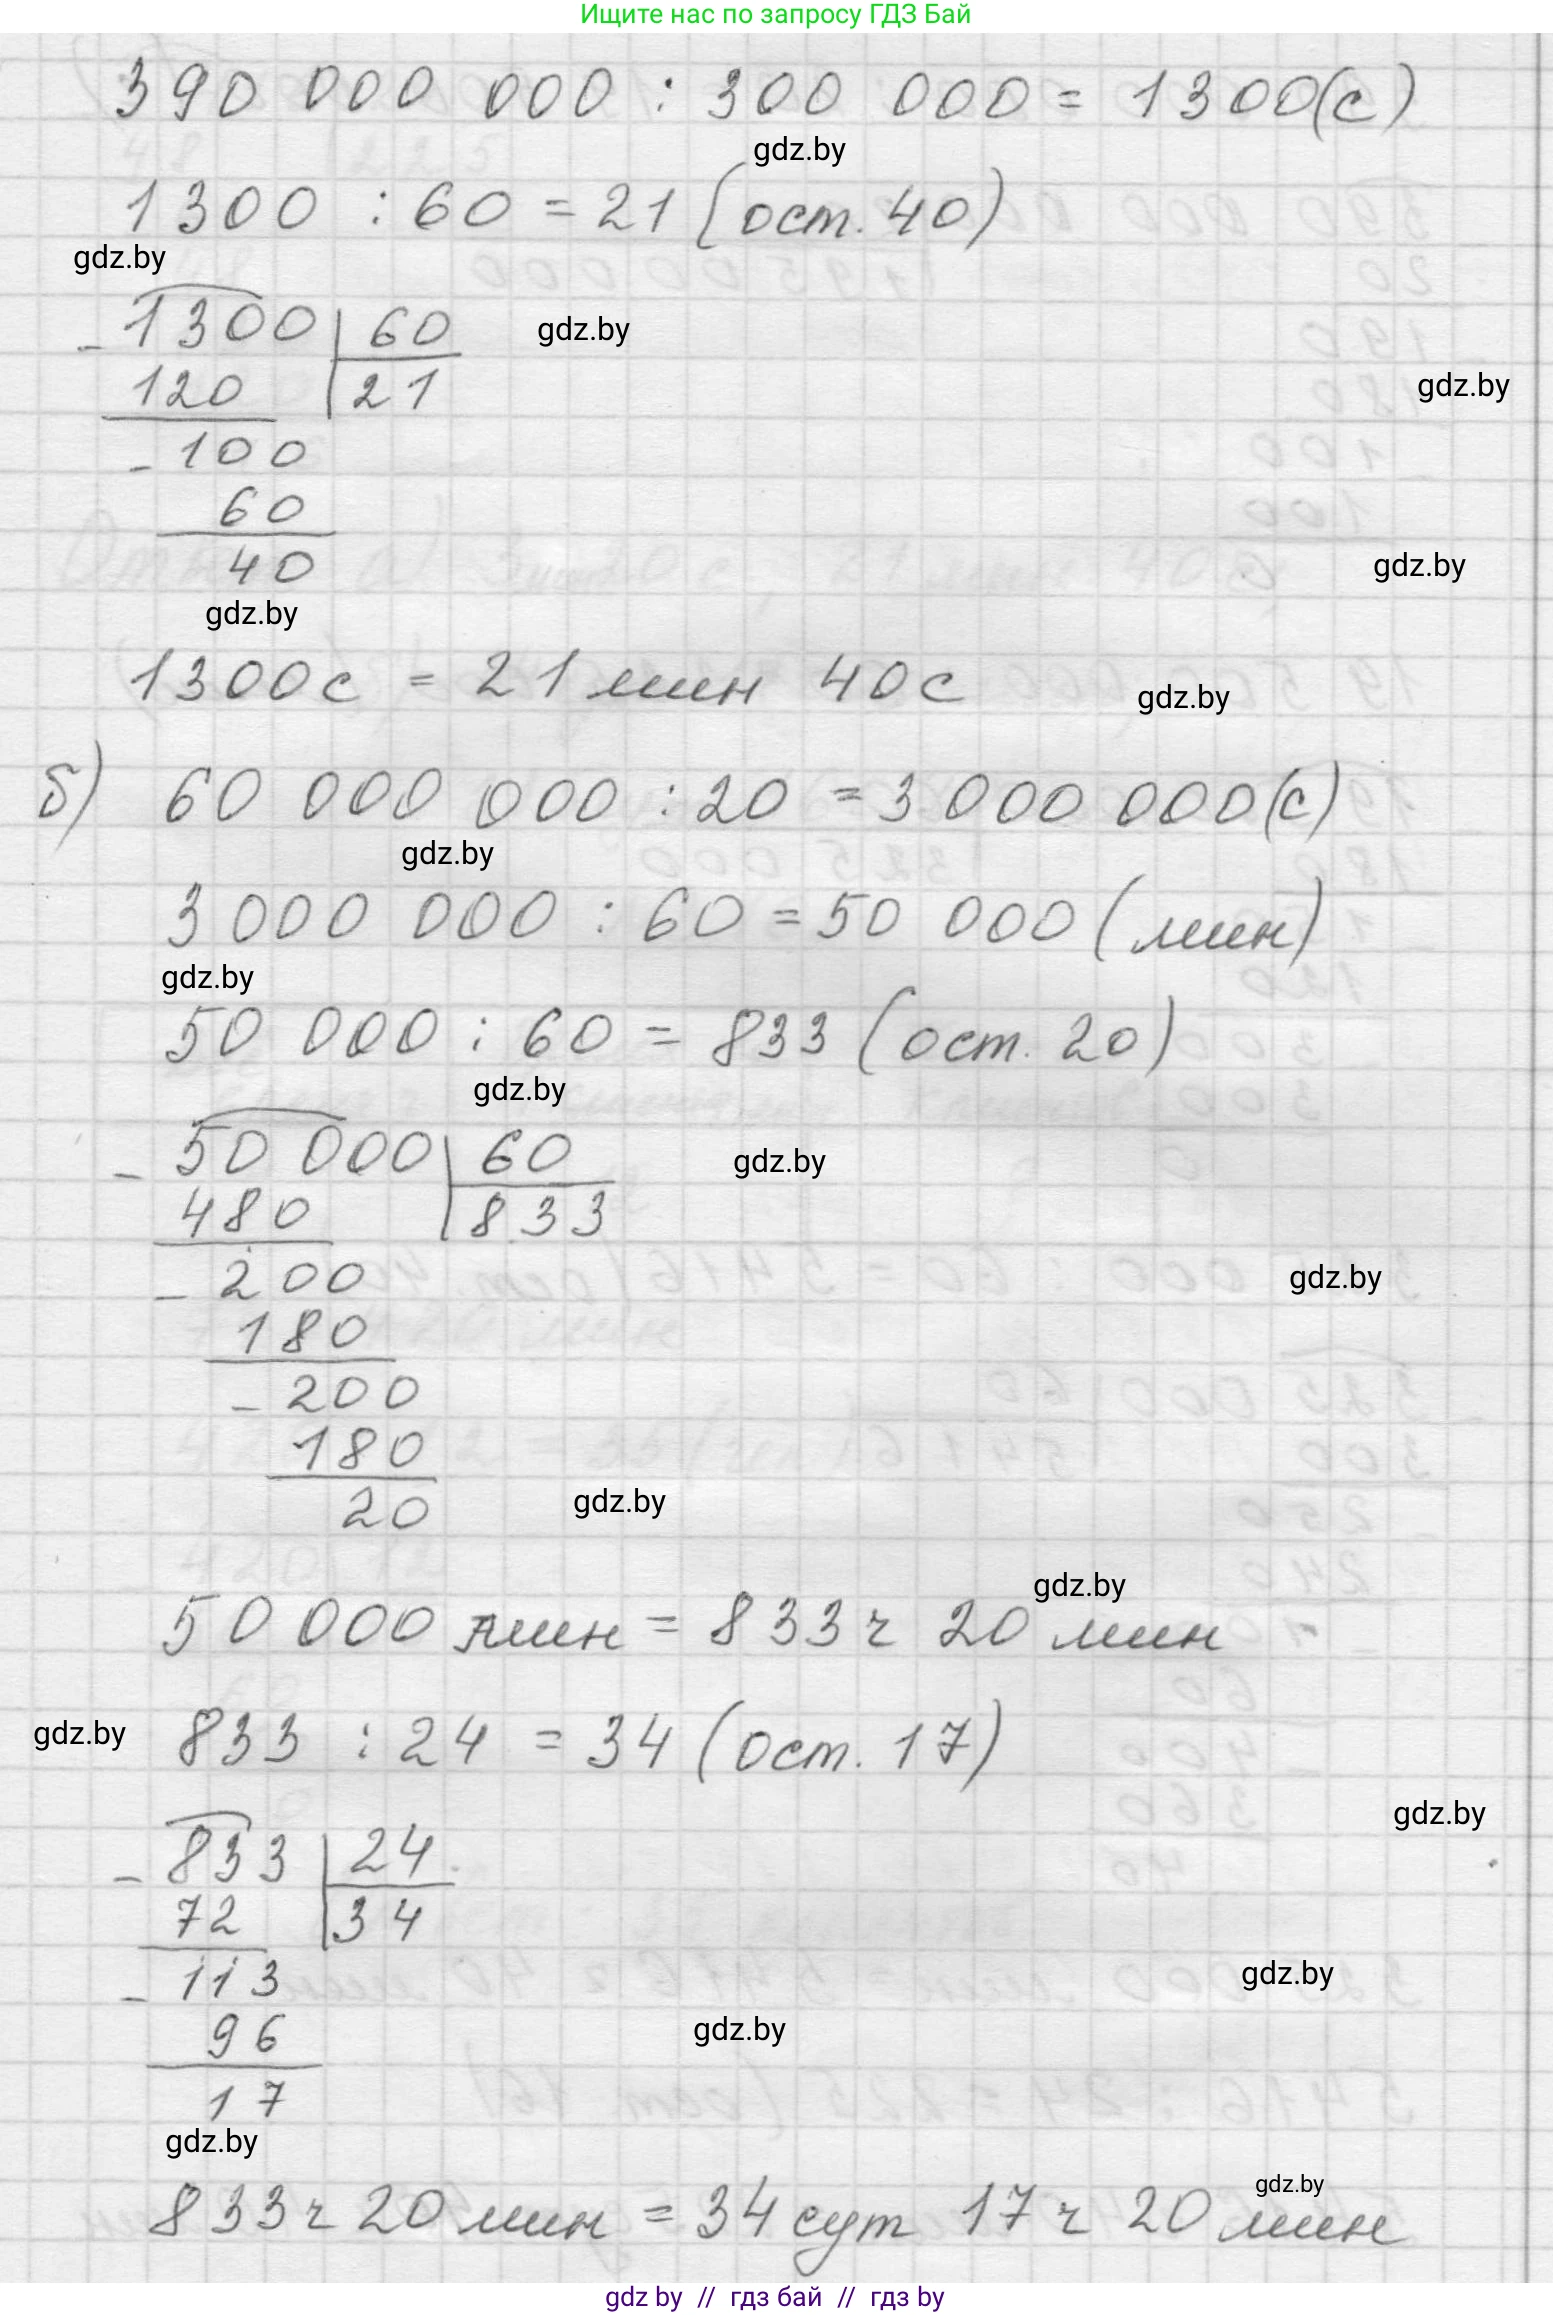 Ищите нас по запросу ГДЗ Бай
390 000 000 : 300 000 = 1300(с)
gdz.by
1300 : 60 = 21 (ост. 40)
gdz.by
- 1300 | 60
gdz.by
120 | 21
gdz.by
- 100
60
40
gdz.by
gdz.by
1300с = 21 мин 40с
gdz.by
б) 60 000 000 : 20 = 3 000 000(с)
gdz.by
3 000 000 : 60 = 50 000 (мин)
gdz.by
50 000 : 60 = 833 (ост. 20)
gdz.by
- 50 000 | 60
gdz.by
480 | 833
- 200
gdz.by
180
- 200
180
20
gdz.by
gdz.by
50 000 мин = 833 ч 20 мин
gdz.by
833 : 24 = 34 (ост. 17)
gdz.by
- 833 | 24
72 | 34
- 113
gdz.by
96
gdz.by
17
gdz.by
gdz.by
833 ч 20 мин = 34 сут 17 ч 20 мин
gdz by // гдз бай // gdz by